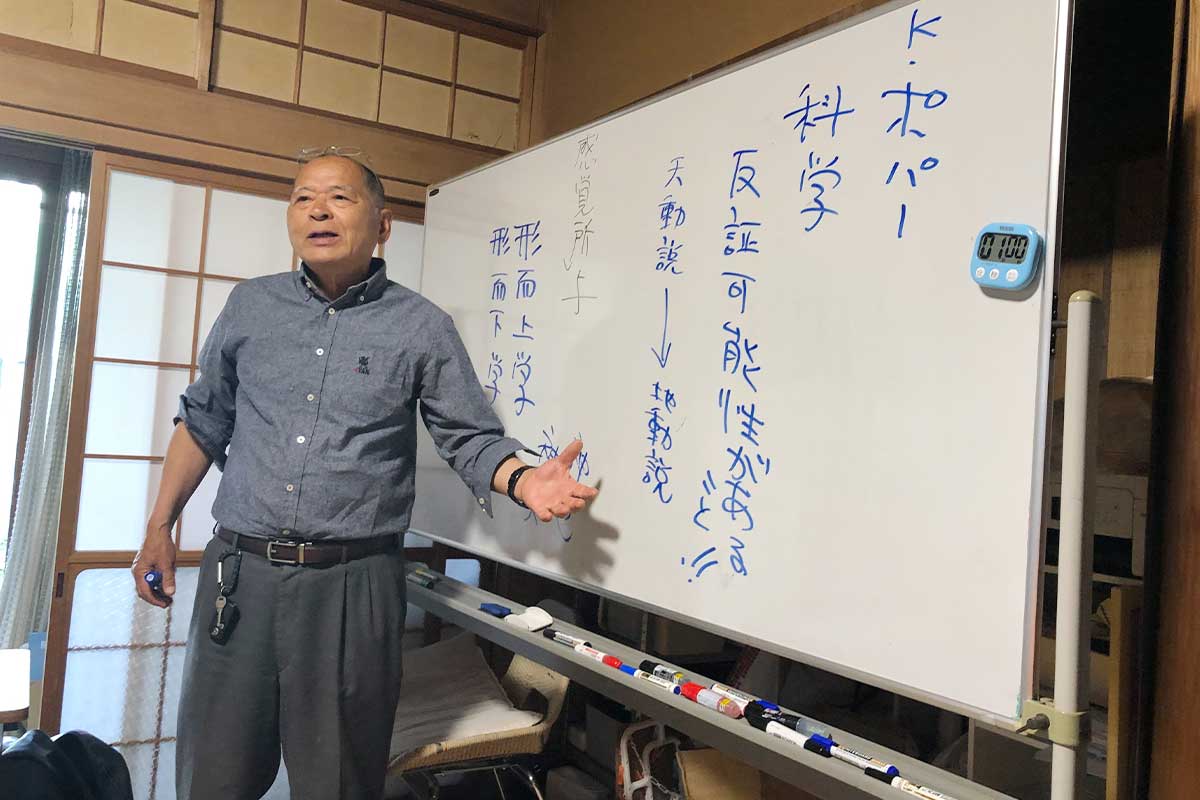 K・ポパー
科学
反証可能性がある
こと!!
天動説→地動説
感覚所与
形而上学
形而下学
01:00